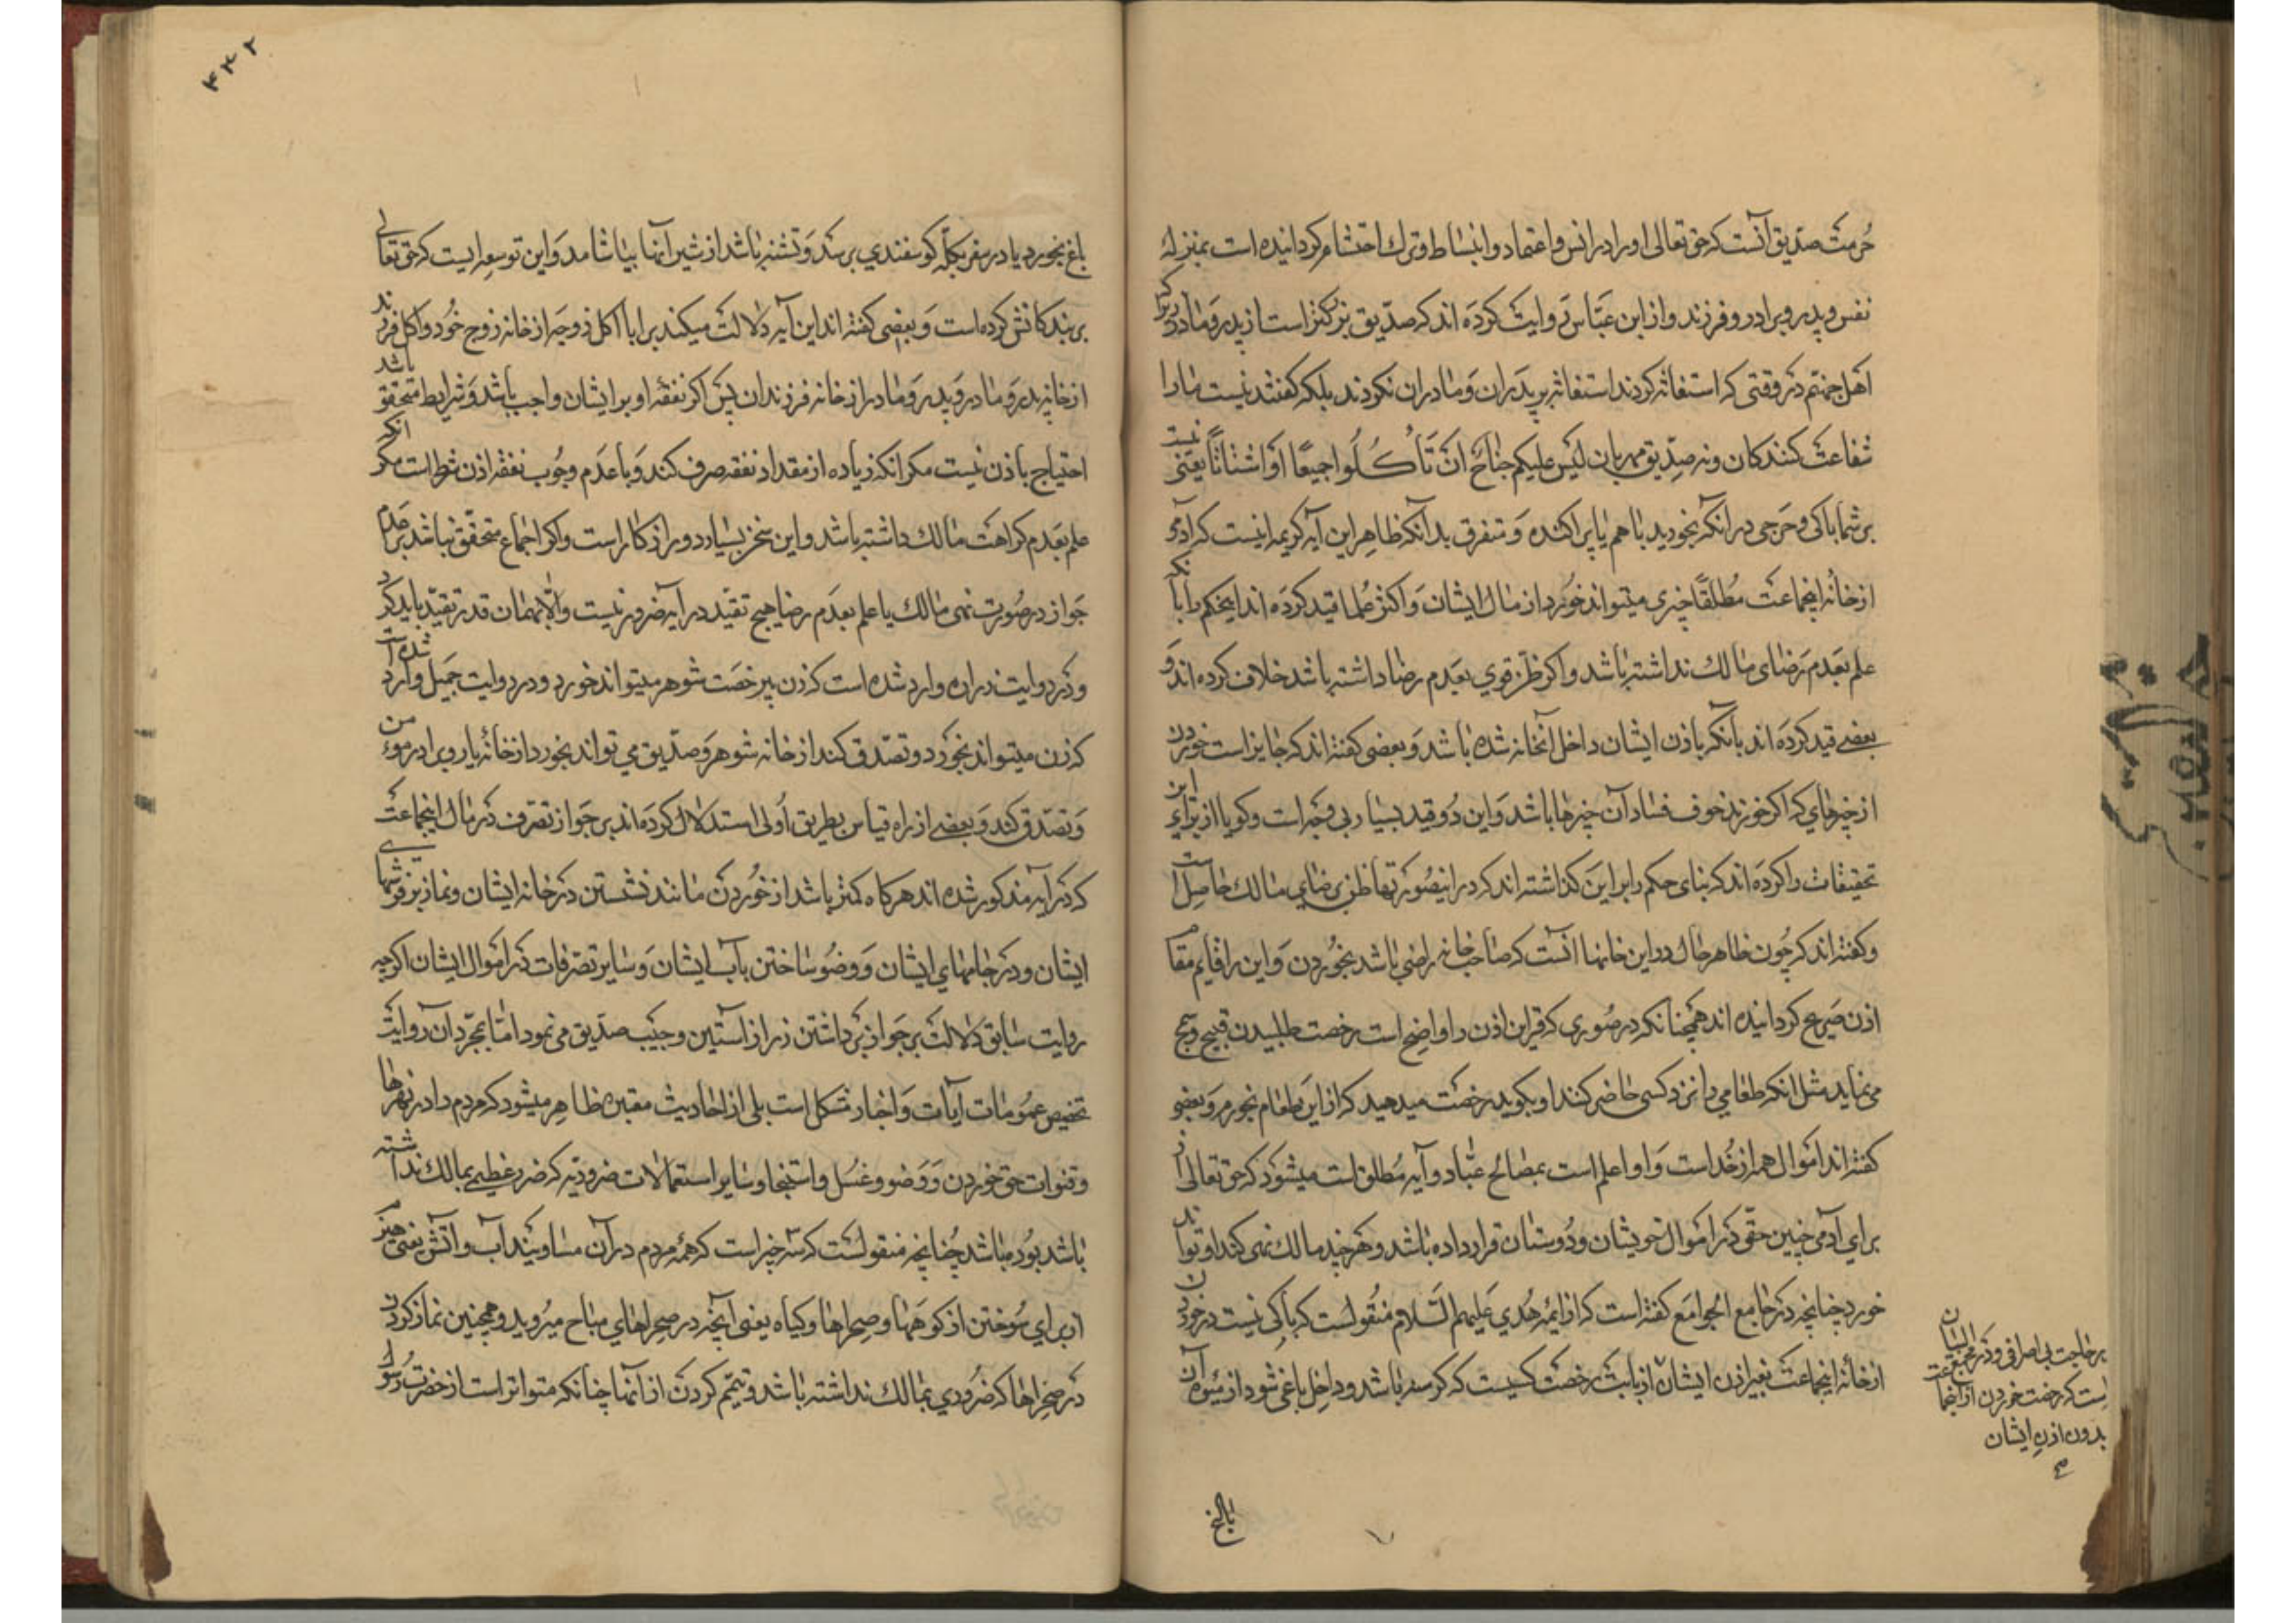 حُرمت صدیق آنست که حق تعالی او را در انس و اعتماد و انبساط و ترک احتشام کردانیده است بمنزلهٔ
نفس و پدر و برادر و فرزند و از ابن عبّاس روایت کرده اند که صدّیق بزرکتر است از پدر و مادر زیرا که
اهل جهنّم در وقتی که استغاثه کردند استغاثه بپدران و مادران نکردند بلکه کفتند نیست ما را
شفاعت کنندکان و نه صدّیق مهربان لَیسَ علیکم جناحٌ اَن تَأکُلُوا جمیعًا اَو اشتاتًا یعنی نیست
بر شما باکی و حرجی در انکه بخورید با هم یا پراکنده و متفرق بدانکه ظاهر این آیه کریمه اینست که آدمی
از خانهٔ اینجماعت مُطلقًا چیزی میتواند خورد از مال ایشان و اکثر عُلما قید کرده اند اینحکم را بآنکه
علم بعدم رضای مالک نداشته باشد و اکر ظنّ قوی بعدم رضا داشته باشد خلاف کرده اند و
بعضی قید کرده اند بآنکه باذن ایشان داخل آنخانه شده باشد و بعضی کفته اند که جایز است خوردن
از چیزهای که اکر نخورند خوف فساد آن چیزها باشد و این دُو قید بسیار بی وجه است و کویا از برای این
تحقیقات را کرده اند که بنای حکم را بر این کذاشته اند که در اینصورتها ظن برضای مالک حاصل است
و کفته اند که چون ظاهر حال در این خانها آنست که صاحب خانه راضی باشد بخُوردن و این را قایم مقام
اذن صَریح کردانیده اند همچنانکه در صُوری که قراین اذن را واضح است رخصت طلبیدن قبیح و سمج
می نماید مثل انکه طعامی را نزد کسی حاضر کنند او بکوید رخصت میدهید که از این طعام بخورم و بعضی
کفته اند اموال همه از خُداست و او اعلم است بمصالح عباد و آیه مُطلق است میشود که حق تعالی از
برای آدمی چنین حقّی در اموال خویشان و دُوستان قرار داده باشد و هر چند مالک نهی کند او تواند
خورد چنانچه در جامع الجوامع کفته است که از ائمه هُدی علیهم السّلام منقُولست که باکی نیست در خوردن
از خانهٔ اینجماعت بغیر اذن ایشان از بابت رخصت کسیست که کرسنه باشد و داخل باغی شود از میوهٔ آن
بر حاجت بی اسراف و در مجمع البیان
است که رخصت خوردن از آنها
بدون اذن ایشان
باغ بخورد
۴۳۲
باغ بخورد یا در سفر بکلّه کوسفندی برسد و تشنه باشد از شیر آنها بیاشامد و این توسعه ایست که حق تعالی
بر بندکانش کرده است و بعضی کفته اند این آیه دلالت میکند بر اباحه اکل زوجه از خانه زوج خُود و اکل فرزند
از خانه پدر و مادر و پدر و مادر از خانه فرزندان پس اکر نفقه او بر ایشان واجب باشد و شرایط متحقق باشد
احتیاج باذن نیست مکر انکه زیاده از مقدار نفقه صرف کند و با عدم وجُوب نفقه اذن شرط است مکر انکه
علم بعدم کراهت مالک داشته باشد و این سخن بسیار دور از کار است و اکر اجماع متحقق نباشد بر عدم
جواز در صُورت نهی مالک یا علم بعدم رضا هیچ تقیید در آیه ضرور نیست و الّا بهمان قدر تقیید باید کرد
و در روایت زراره وارد شده است که زن بی رخصت شوهر میتواند خورد و در روایت جمیل وارد شده است
که زن میتواند بخورد و تصدّق کند از خانه شوهر و صدّیق می تواند بخورد از خانهٔ یار و برادر مومن
و تصدّق کند و بعضی از راه قیاس بطریق اُولی استدلال کرده اند بر جواز تصرّف در مال اینجماعت
که در آیه مذکور شده اند هرکاه کمتر باشد از خُوردن مانند نشستن در خانه ایشان و نماز بر فرشهای
ایشان و در جامهای ایشان و وضُو ساختن بآب ایشان و سایر تصرّفات در اموال ایشان اکرچه
روایت سابق دلالت بر جواز برداشتن زر از آستین و جیب صدّیق می نمود امّا بمجرّد آن روایت
تخصیص عمُومات آیات و اخبار مشکل است بلی از احادیث معتبره ظاهر میشود که مردم را در نهرها
و قنوات حق خوردن و وضو و غُسل و استنجا و سایر استعمالات ضروریّه که ضرر عظیمی بمالک نداشته
باشد بُوده باشد چُنانچه منقولست که سه چیز است که همهٔ مردم در آن مساویند آب و آتش یعنی هیزم
از برای سُوختن از کوهها و صحراها و کیاه یعنی آنچه در صحراهای مباح میرُوید و همچنین نماز کردن
در صحراها که ضرری بمالک نداشته باشد و تیمّم کردن از آنها چنانکه متواتر است از حضرت رسُول